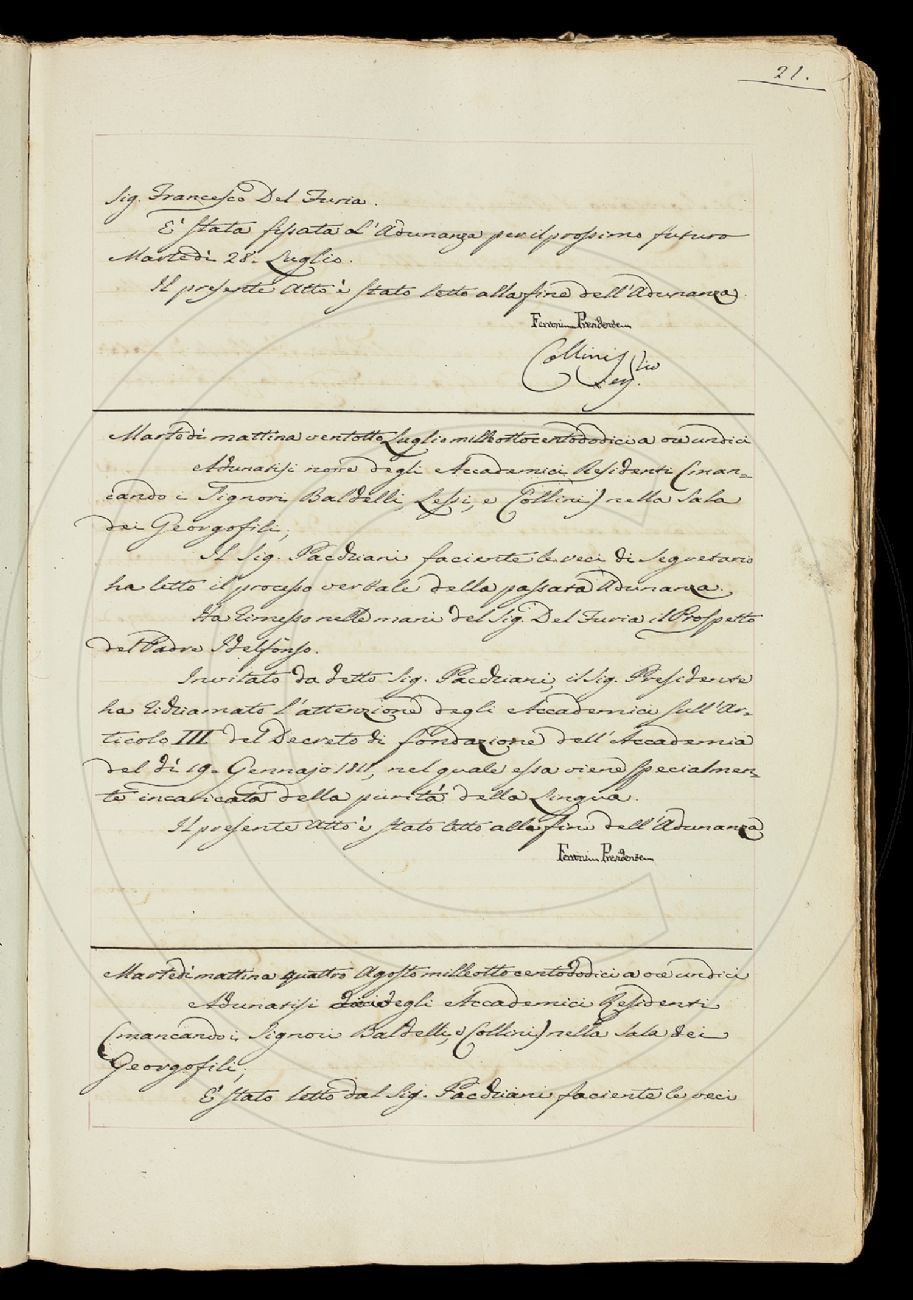 21.
Sig. Francesco Del Furia.
E' stata fissata l'Adunanza per il prossimo futuro
Martedì 28. Luglio.
Il presente Atto è stato letto alla fine dell'Adunanza
Ferroni Presidente
Collini Seg.rio
Martedì mattina ventotto Luglio mille ottocentododici a ore undici
Adunatisi nove degli Accademici Residenti (man-
cando i Signori Baldelli, Lessi, e Collini) nella Sala
dei Georgofili,
Il Sig. Pacchiani faciente le veci di Segretario
ha letto il processo verbale della passata Adunanza.
Ha rimesso nelle mani del Sig. Del Furia il Prospetto
del Padre Idelfonso.
Invitato da detto Sig. Pacchiani, il Sig. Presidente
ha richiamato l'attenzione degli Accademici sull'Ar-
ticolo III del Decreto di fondazione dell'Accademia
del dì 19. Gennajo 1811, nel quale essa viene specialmen-
te incaricata della purità della Lingua.
Il presente Atto è stato letto alla fine dell'Adunanza
Ferroni Presidente
Martedì mattina quattro Agosto mille ottocentododici a ore undici
Adunatisi dieci degli Accademici Residenti
(mancando i Signori Baldelli, e Collini) nella Sala dei
Georgofili,
E' stato letto dal Sig. Pacchiani faciente le veci